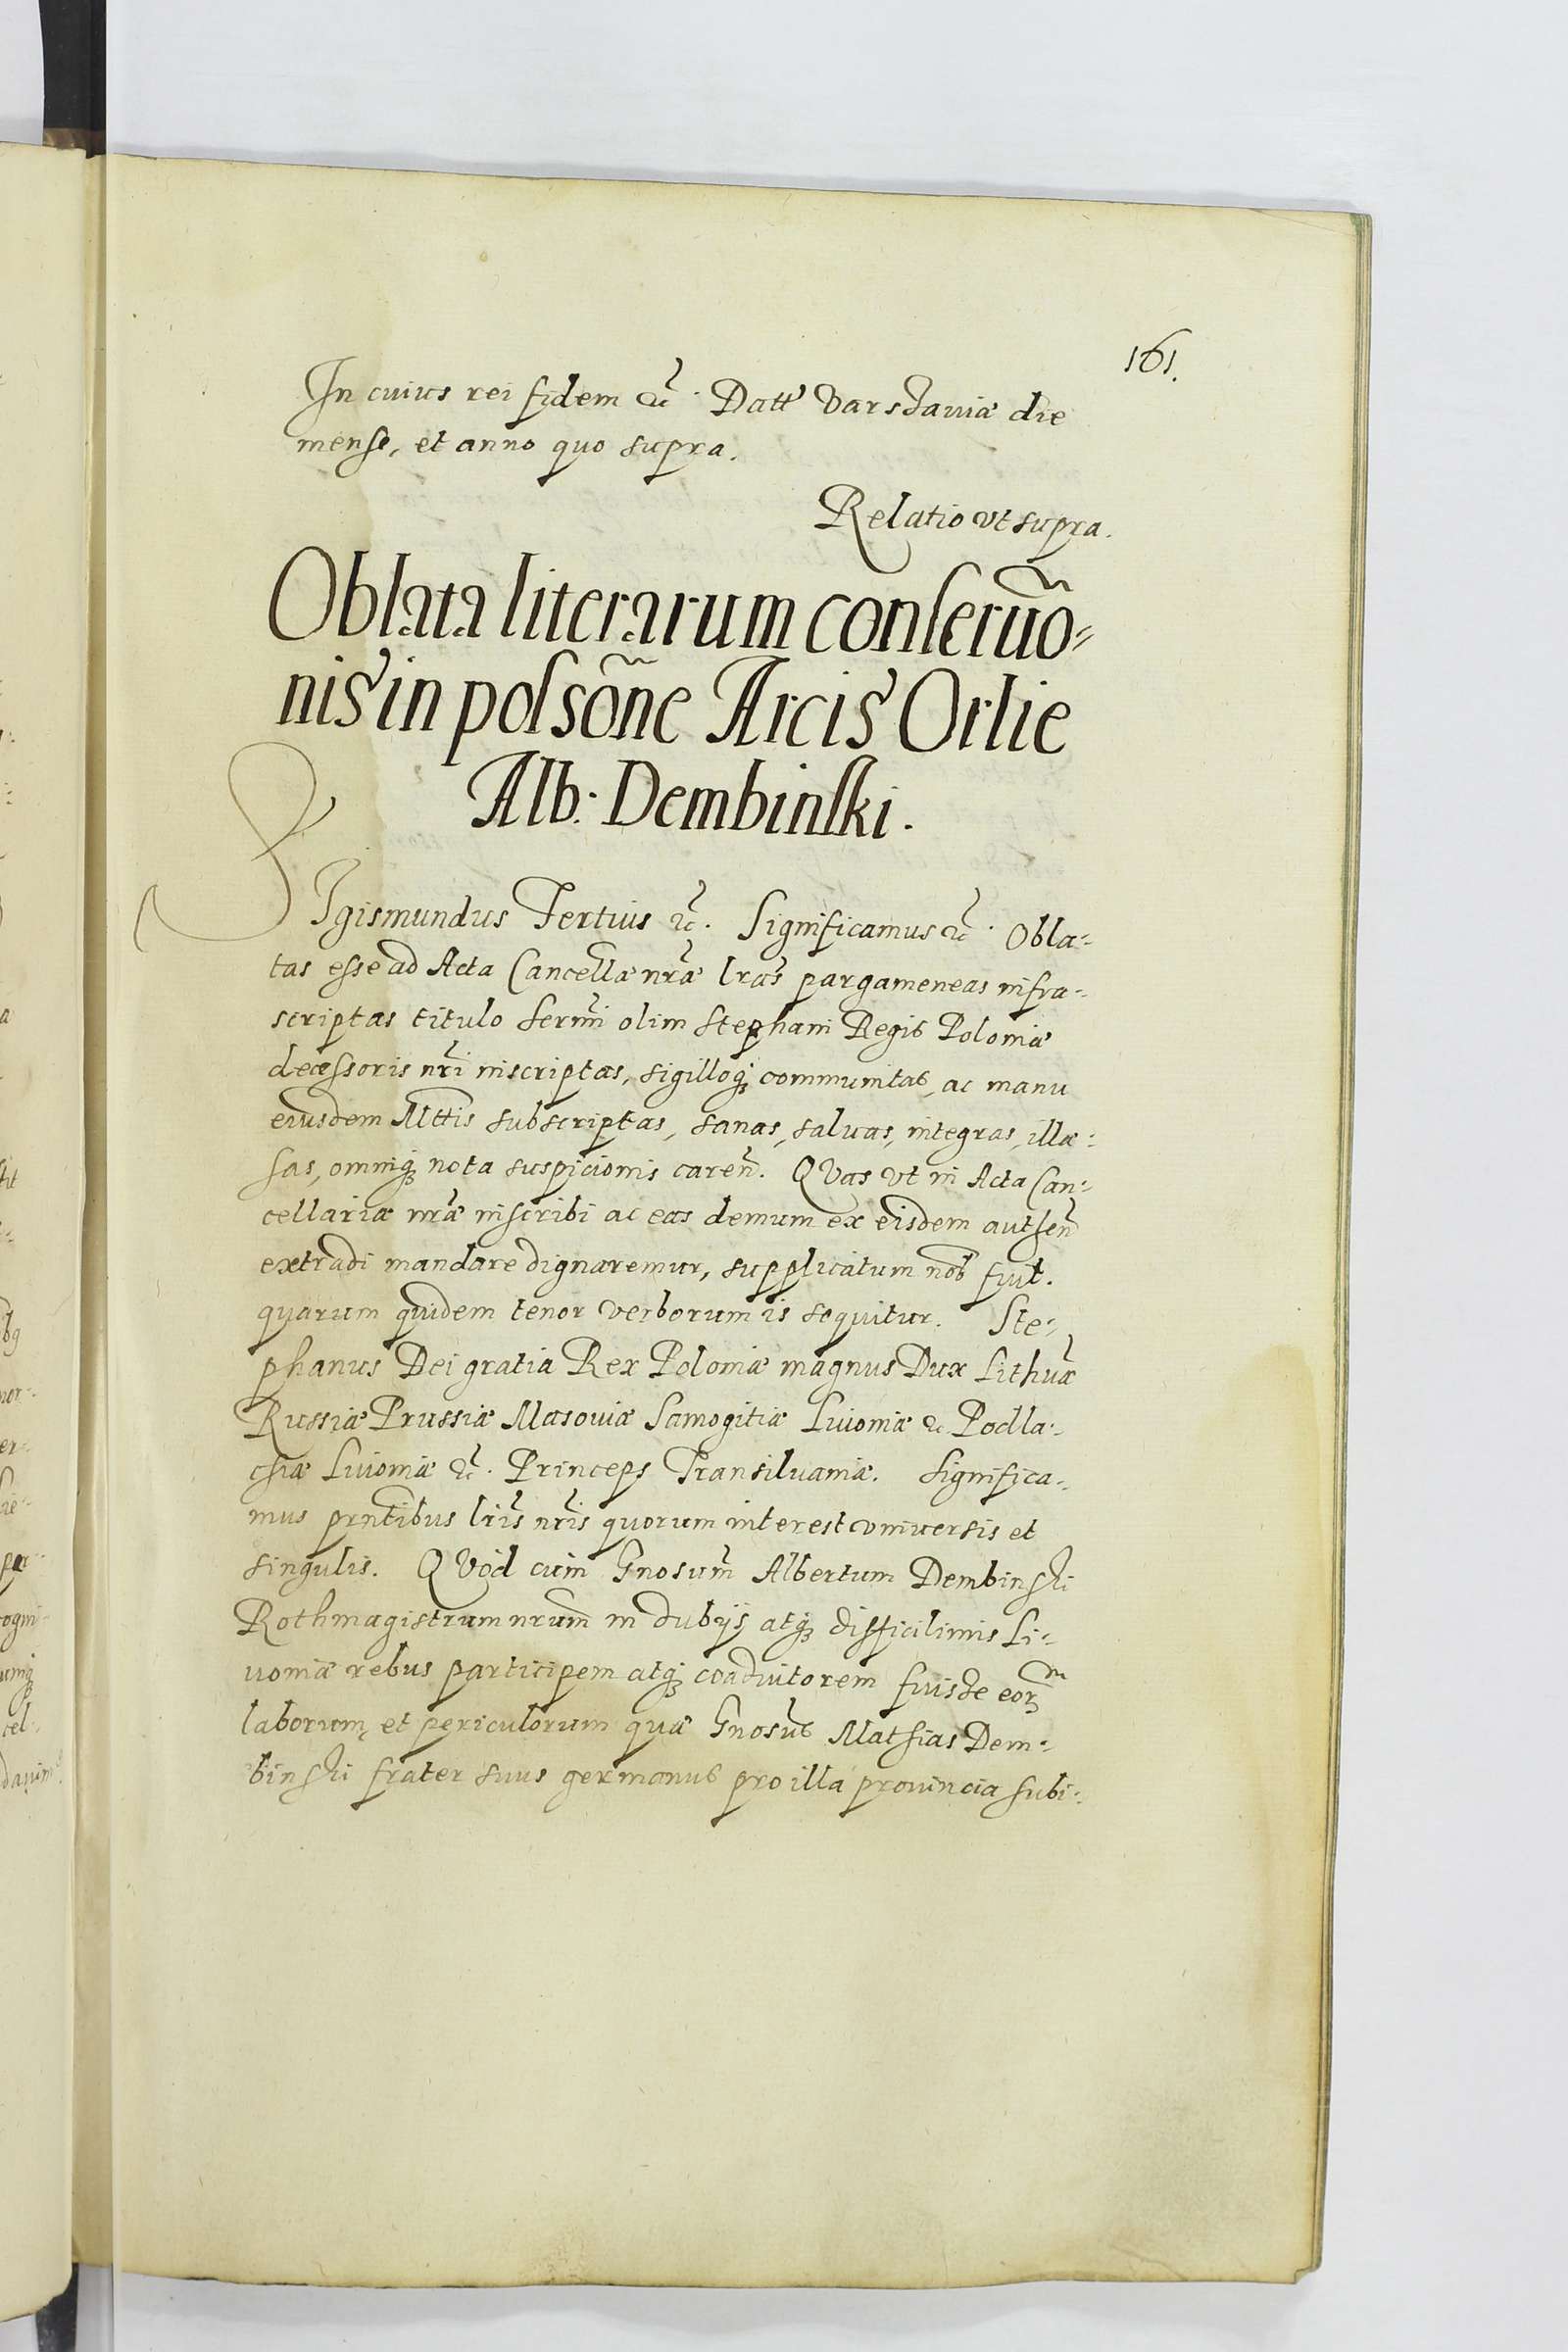 161.
In cuius rei fidem &c. Datt Varssauiæ die
mense, et anno quo supra.
Relatio vt supra.
Oblata literarum conseruõ=
nis in possõne Arcis Orlie
Alb: Dembinski.
Sigismundus Tertius &c. Significamus &c. Obla-
tas esse ad Acta Cancellæ nræ lras pargameneas infra-
scriptas titulo Sermi olim Stephani Regis Poloniæ
decessoris nri inscriptas, sigilloq; communitas, ac manu
eiusdem Mttis subscriptas, sanas, saluas, integras, illæ-
sas, omniq; nota suspicionis caren. QVas vt in Acta Can-
cellariæ nræ inscribi ac eas demum ex eisdem authen
extradi mandare dignaremur, supplicatum nob fuit.
quarum quidem tenor verborum is sequitur. Ste-
phanus Dei gratia Rex Poloniæ magnus Dux Lithuæ
Russiæ Prussiæ Masouiæ Samogitiæ Liuoniæ &c Podla-
chiæ Liuoniæ &c. Princeps Transiluaniæ. Significa-
mus prntibus lris nris quorum interest vniuersis et
singulis. QVod cum Gnosum Albertum Dembinski
Rothmagistrum nrum in dubijs atq; difficilimis Li-
uoniæ rebus participem atq; coadiutorem fuisse eorm
laborum, et periculorum quæ Gnosus Mathias Dem-
binski frater suus germanus pro illa prouincia subi-